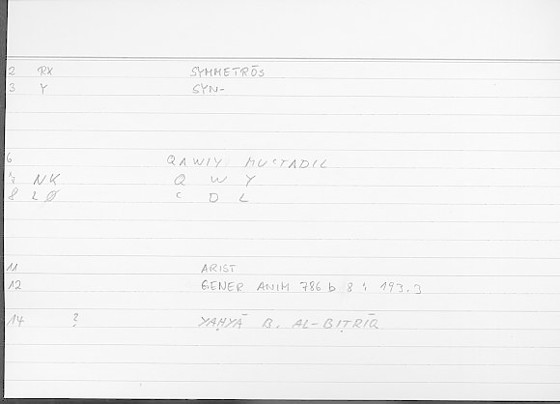 2 RX SYMMETRŌS
3 Y SYN-
6 QAWIY MUʿTADIL
NK Q W Y
8 LØ ʿ D L
11 ARIST
12 GENER ANIM 786 b 8 ; 193.3
14 ? YAḤYĀ B. AL-BIṬRĪQ